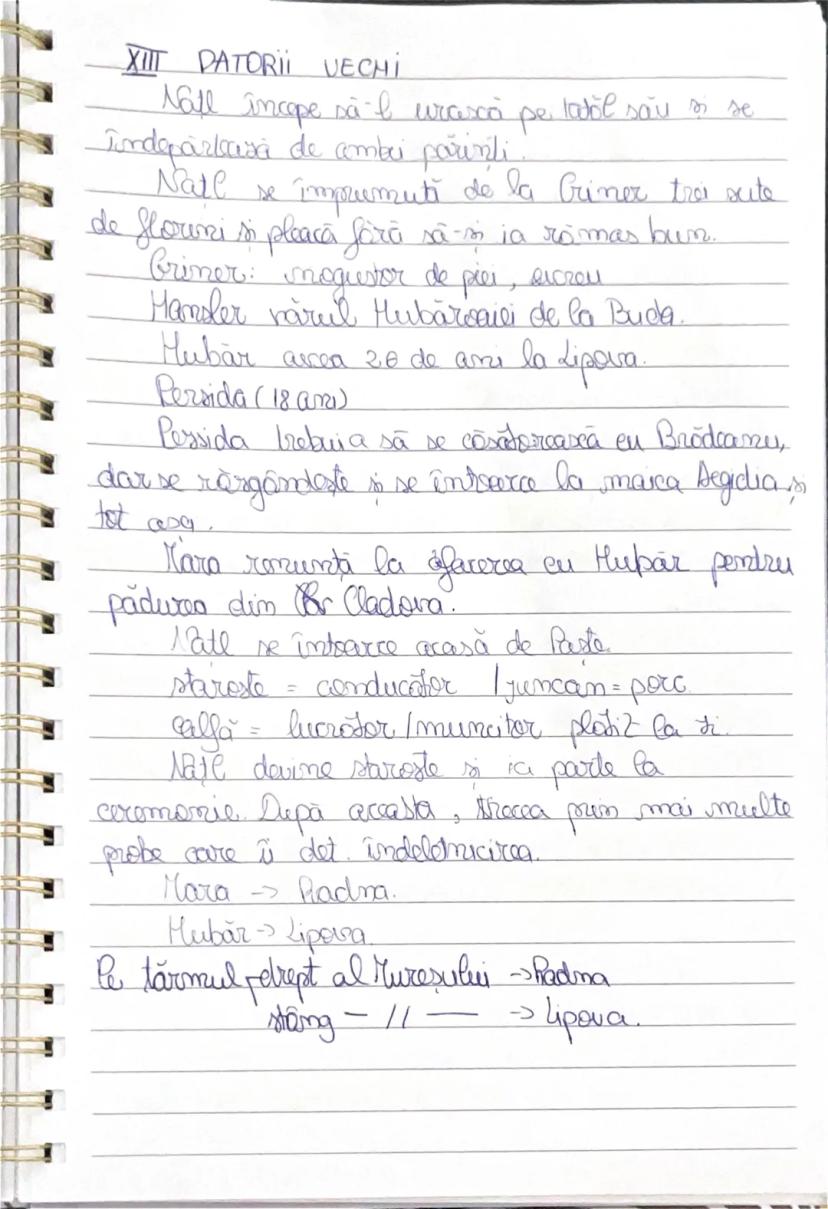 XIII DATORII VECHI
Națl începe să-l urască pe tatăl său și se
îndepărtează de ambii părinți.
Națl se împrumută de la Griner trei sute
de florini și pleacă fără să-și ia rămas bun.
Griner: negustor de piei, evreu
Hansler vărul Hubăroaiei de la Buda.
Hubăr avea 26 de ani la Lipova.
Persida (18 ani)
Persida trebuia să se căsătorească cu Brădeanu,
dar se răzgândește și se întoarce la maica Aegidia și
tot așa.
Mara renunță la afacerea cu Hubăr pentru
pădurea din Cladova.
Națl se întoarce acasă de Paște.
staroste = conducător / juncan = porc
calfă = lucrător / muncitor plătit la zi.
Națl devine staroste și ia parte la
ceremonie. După aceasta, trecea prin mai multe
probe care îi det. îndeletnicirea.
Mara -> Radna.
Hubăr -> Lipova
Pe țărmul drept al Mureșului -> Radna
stâng — // — -> Lipova.